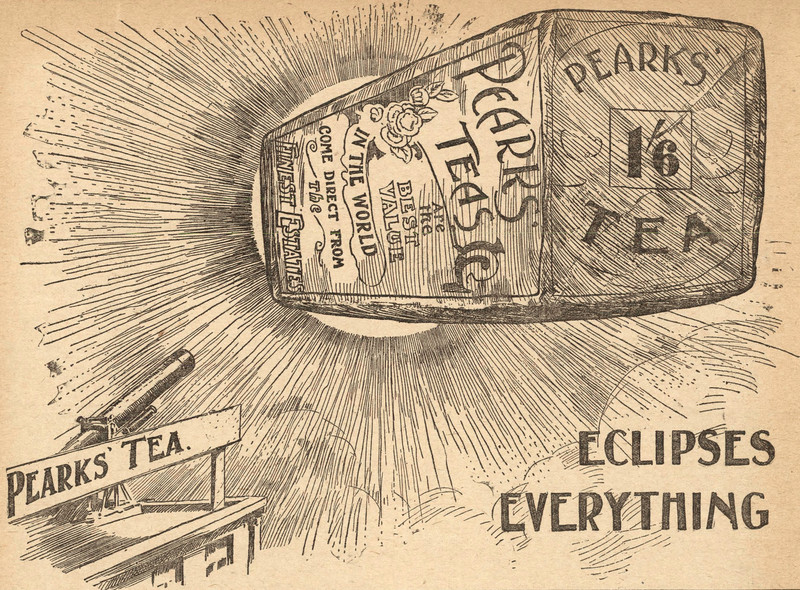 PEARKS'
TEAS
Are
the
BEST
VALUE
IN THE WORLD
COME DIRECT FROM
The
FINEST ESTATES
PEARKS'
1/6
TEA
PEARKS' TEA.
ECLIPSES
EVERYTHING